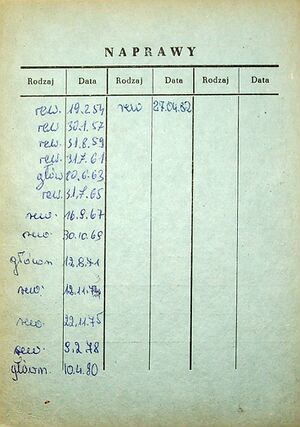 NAPRAWY
Rodzaj Data Rodzaj Data Rodzaj Data
rew. 19.2.54 rew 27.04.82
rew. 30.1.57
rew. 31.8.59
rew. 31.7.61
głów 20.6.63
rew. 31.7.65
rew. 16.9.67
rew. 30.10.69
główn 12.8.71
rew. 12.11.74
rew. 22.11.75
rew. 9.2.78
główn. 10.4.80